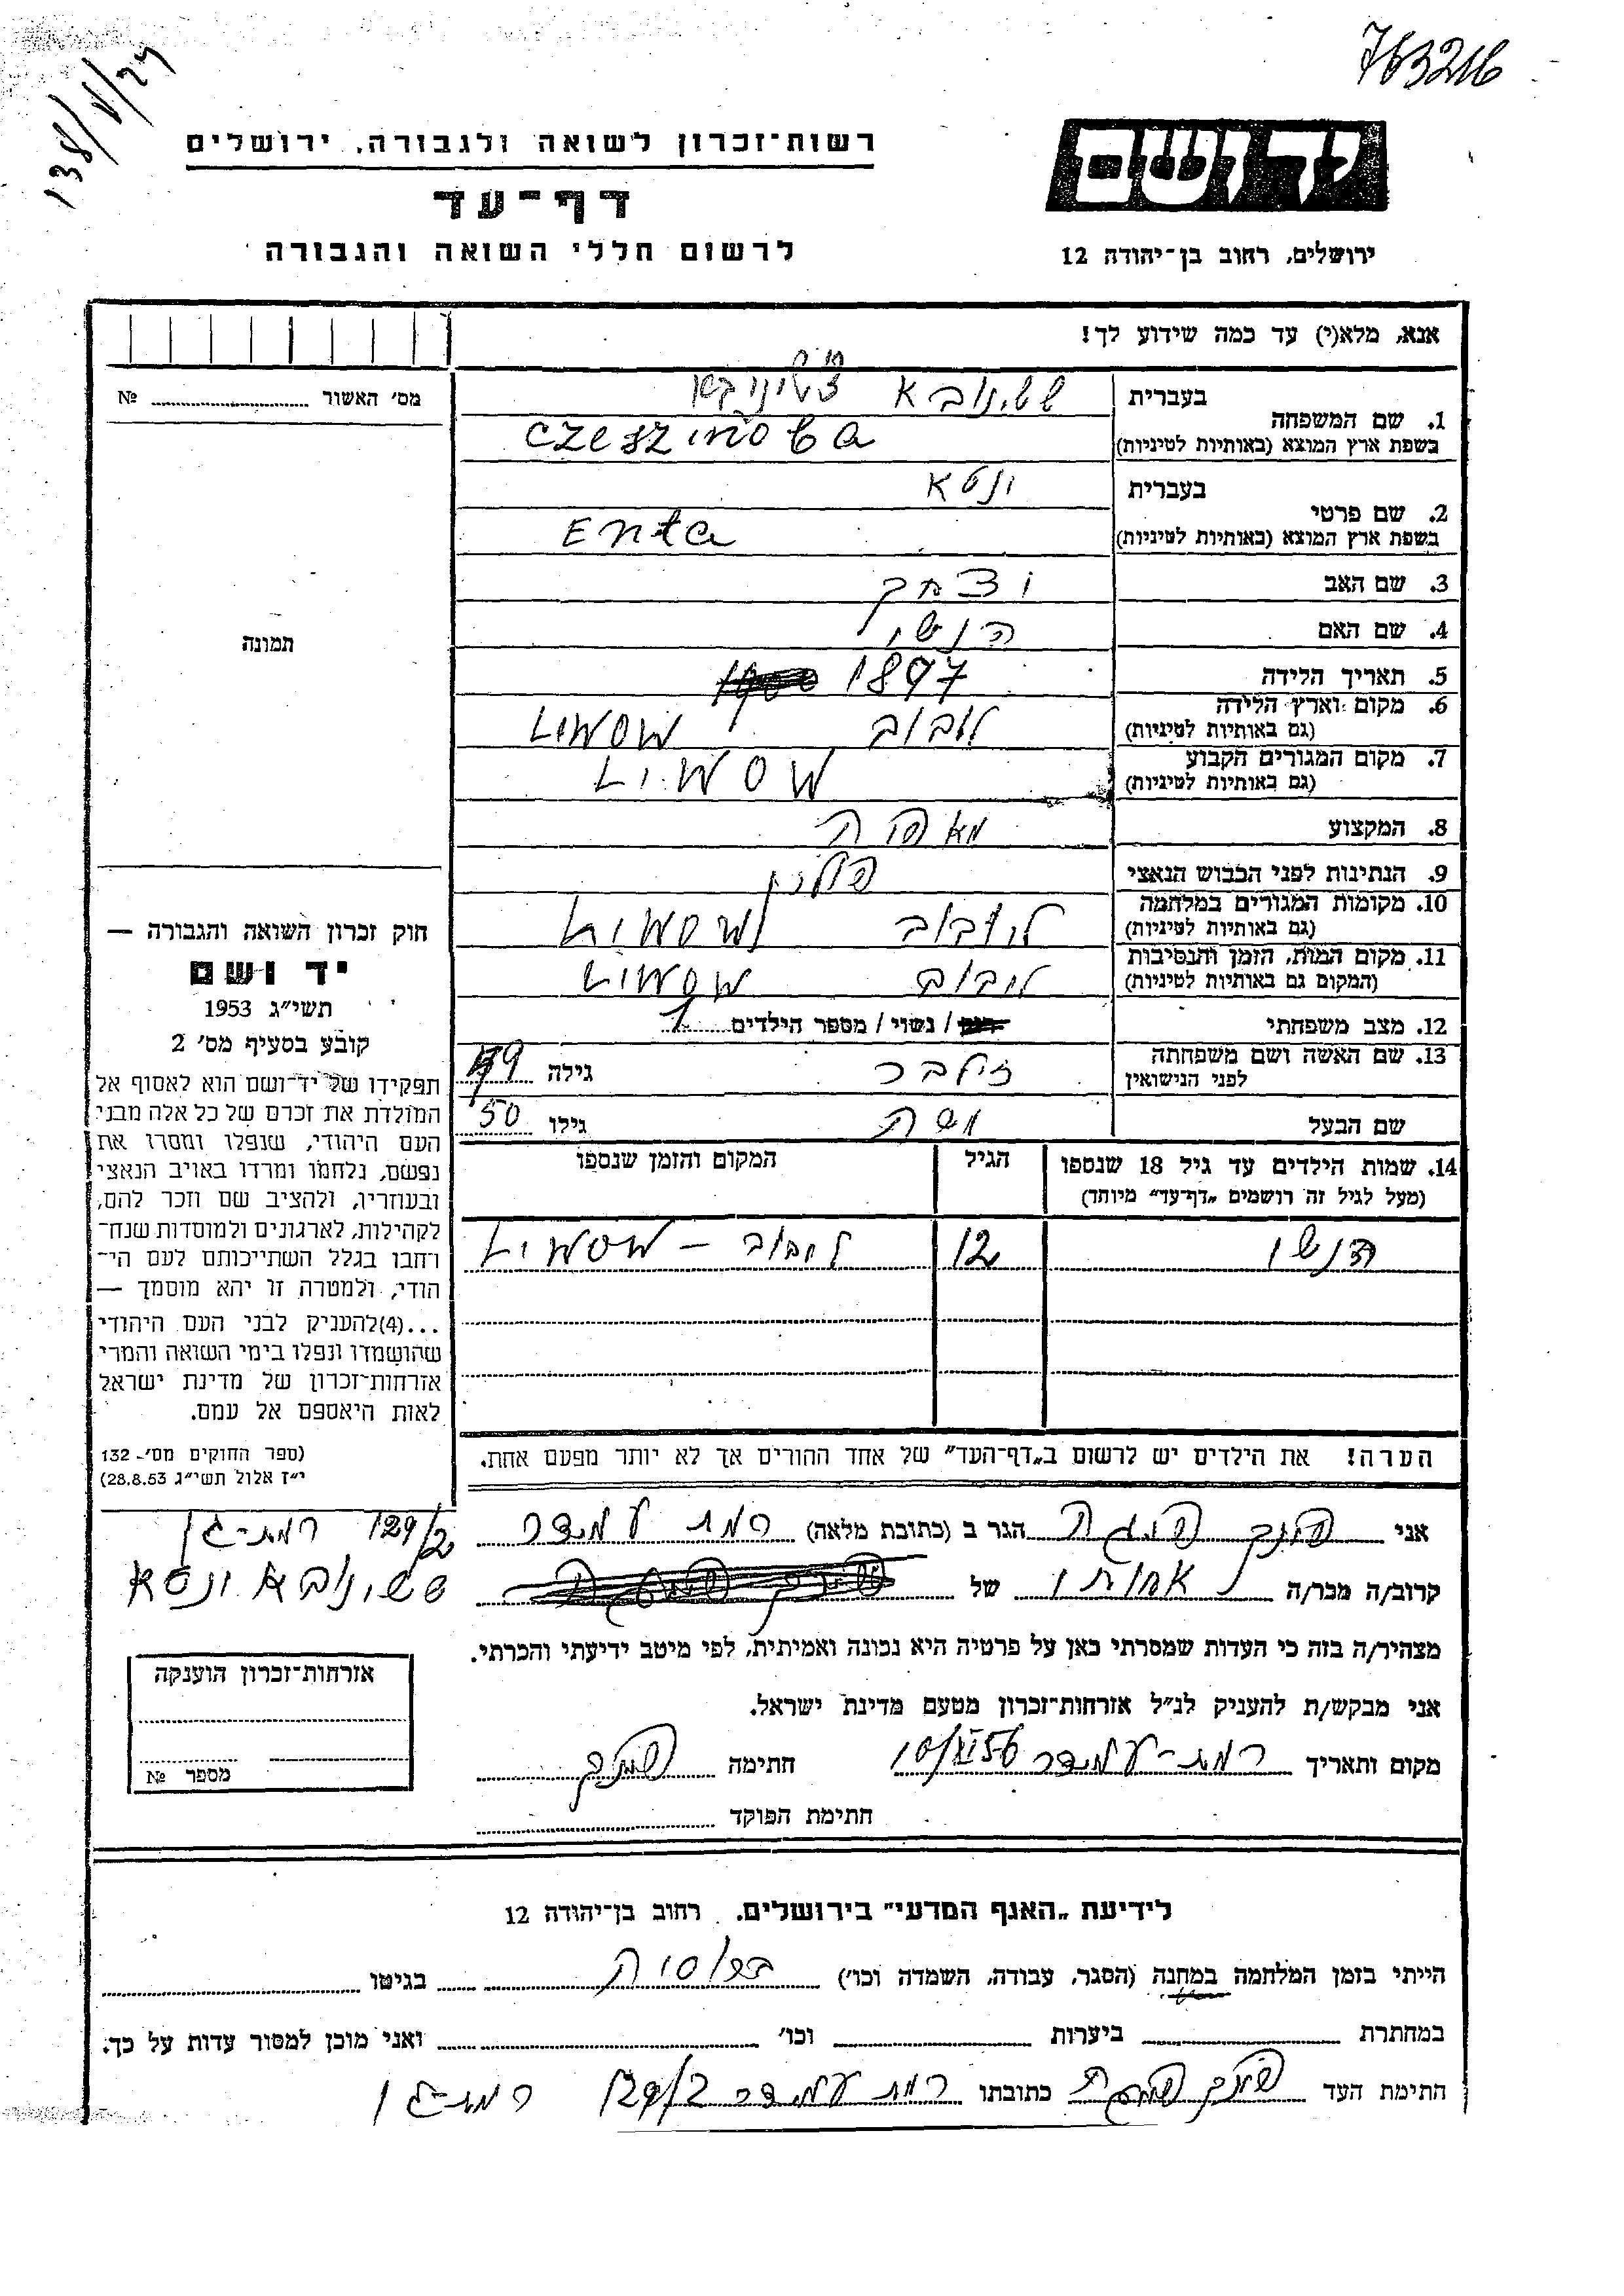 763216
138/V/27
ידושם
רשות־זכרון לשואה ולגבורה, ירושלים
דף־עד
ירושלים, רחוב בן־יהודה 12
לרשום חללי השואה והגבורה
אנא, מלא(י) עד כמה שידוע לך!
מס׳ האשור № 
תמונה
1. שם המשפחה
בעברית
בשפת ארץ המוצא (באותיות לטיניות)
czeszinoba
2. שם פרטי
בעברית
ונטא
בשפת ארץ המוצא (באותיות לטיניות)
Enta
3. שם האב
יצחק
4. שם האם
הנשי
5. תאריך הלידה
1897
6. מקום וארץ הלידה
(גם באותיות לטיניות)
לבוב LIWOW
7. מקום המגורים הקבוע
(גם באותיות לטיניות)
LIWOW
8. המקצוע
מאפה
9. הנתינות לפני הכבוש הנאצי
פולין
10. מקומות המגורים במלחמה
(גם באותיות לטיניות)
לבוב LIWOW
11. מקום המות, הזמן והנסיבות
(המקום גם באותיות לטיניות)
לבוב LIWOW
12. מצב משפחתי
רווק / נשוי / מספר הילדים 1
13. שם האשה ושם משפחתה
לפני הנישואין
זילבר
גילה 49
שם הבעל
משה
גילו 50
14. שמות הילדים עד גיל 18 שנספו
(מעל לגיל זה רושמים „דף־עד״ מיוחד)
הגיל
המקום והזמן שנספו
הנשי 12 לבוב – LIWOW
הערה! את הילדים יש לרשום ב„דף־העד״ של אחד ההורים אך לא יותר מפעם אחת.
חוק זכרון השואה והגבורה —
יד ושם
תשי״ג 1953
קובע בסעיף מס׳ 2
תפקידו של יד־ושם הוא לאסוף אל
המולדת את זכרם של כל אלה מבני
העם היהודי, שנפלו ומסרו את
נפשם, נלחמו ומרדו באויב הנאצי
ובעוזריו, ולהציב שם וזכר להם,
לקהילות, לארגונים ולמוסדות שנח־
רחבו בגלל השתייכותם לעם הי־
הודי, ולמטרה זו יהא מוסמך —
...(4)להעניק לבני העם היהודי
שהושמדו ונפלו בימי השואה והמרי
אזרחות־זכרון של מדינת ישראל
לאות היאספם אל עמם.
(ספר החוקים מס׳ 132
י״ז אלול תשי״ג 28.8.53)
אני הגר ב (כתובת מלאה) רמת עמידר 129/2 רמת־גן
קרוב/ה מכר/ה אחותי של ששינובא ונטא
מצהיר/ה בזה כי העדות שמסרתי כאן על פרטיה היא נכונה ואמיתית, לפי מיטב ידיעתי והכרתי.
אני מבקש/ת להעניק לנ״ל אזרחות־זכרון מטעם מדינת ישראל.
מקום ותאריך רמת־עמידר חתימה
חתימת הפוקד
אזרחות־זכרון הוענקה
מספר №
לידיעת „האגף המדעי״ בירושלים. רחוב בן־יהודה 12
הייתי בזמן המלחמה במחנה (הסגר, עבודה, השמדה וכו׳) ברוסיה בגיטו
במחתרת ביערות וכו׳ ואני מוכן למסור עדות על כך.
חתימת העד כתובתו רמת עמידר 129/2 רמת־גן